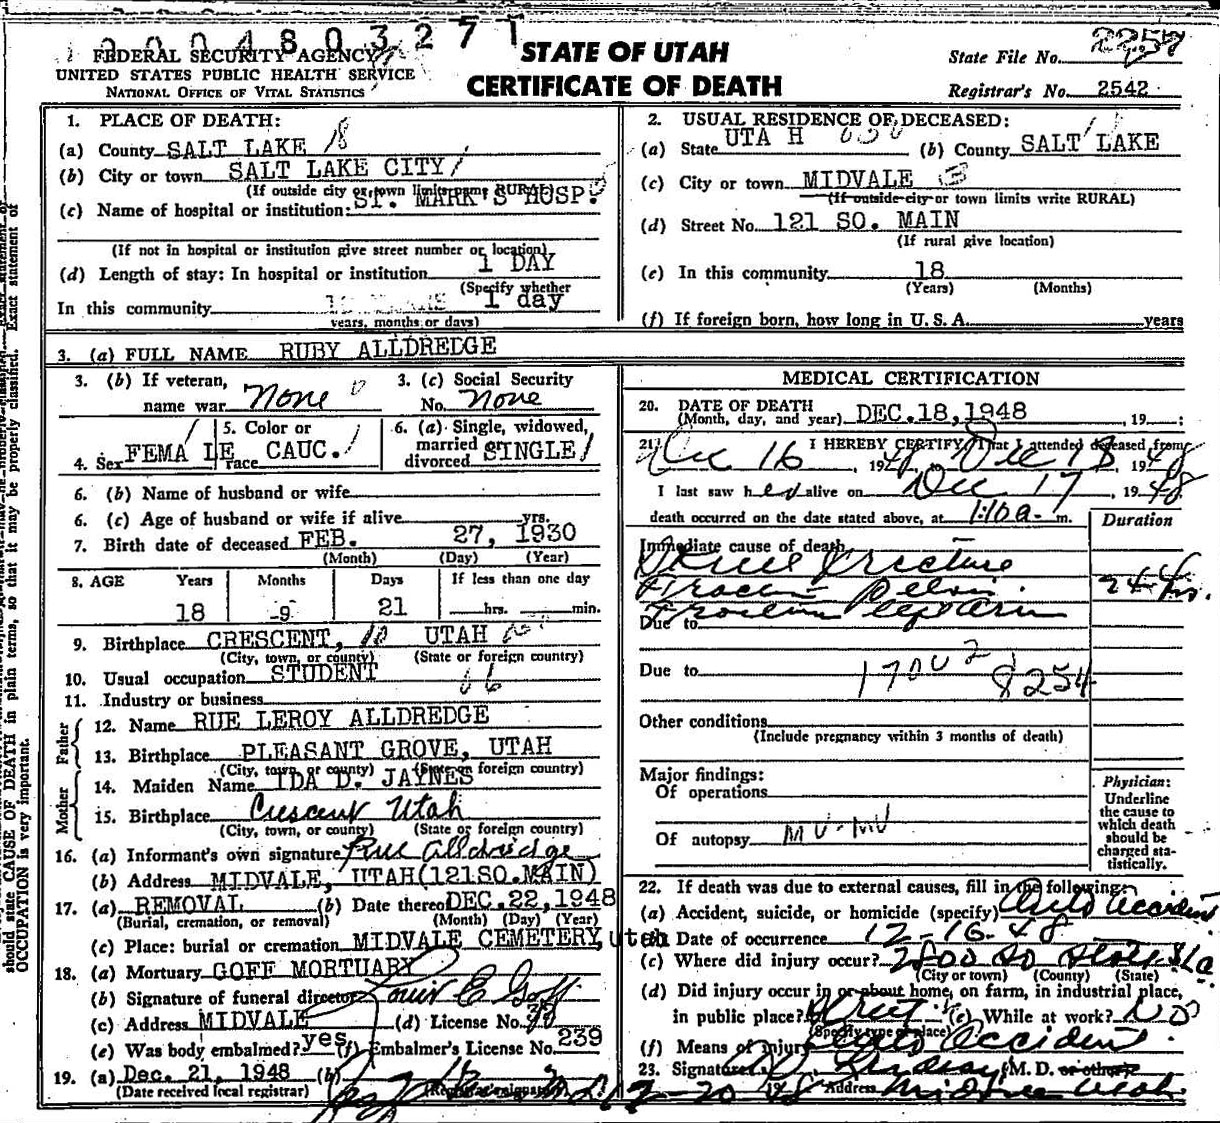 FEDERAL SECURITY AGENCY
UNITED STATES PUBLIC HEALTH SERVICE
NATIONAL OFFICE OF VITAL STATISTICS
STATE OF UTAH
CERTIFICATE OF DEATH
State File No.
Registrar's No. 2542
1. PLACE OF DEATH:
(a) County SALT LAKE 18
(b) City or town SALT LAKE CITY
(If outside city or town limits write RURAL)
(c) Name of hospital or institution: ST. MARK'S HOSP.
(If not in hospital or institution give street number or location)
(d) Length of stay: In hospital or institution 1 DAY
(Specify whether
In this community 1 day
years, months or days)
2. USUAL RESIDENCE OF DECEASED:
(a) State UTAH (b) County SALT LAKE
(c) City or town MIDVALE
(If outside city or town limits write RURAL)
(d) Street No. 121 SO. MAIN
(If rural give location)
(e) In this community 18
(Years) (Months)
(f) If foreign born, how long in U. S. A. years
3. (a) FULL NAME RUBY ALLDREDGE
3. (b) If veteran, name war None
3. (c) Social Security No. None
4. Sex FEMALE
5. Color or race CAUC.
6. (a) Single, widowed, married or divorced SINGLE
6. (b) Name of husband or wife
6. (c) Age of husband or wife if alive yrs.
7. Birth date of deceased FEB. 27, 1930
(Month) (Day) (Year)
8. AGE Years Months Days If less than one day
18 9 21 hrs. min.
9. Birthplace CRESCENT, UTAH
(City, town, or county) (State or foreign country)
10. Usual occupation STUDENT
11. Industry or business
Father
12. Name RUE LEROY ALLDREDGE
13. Birthplace PLEASANT GROVE, UTAH
(City, town, or county) (State or foreign country)
Mother
14. Maiden Name IDA D. JAYNES
15. Birthplace Crescent Utah
(City, town, or county) (State or foreign country)
16. (a) Informant's own signature Rue Alldredge
(b) Address MIDVALE, UTAH(121SO.MAIN)
17. (a) REMOVAL (b) Date thereof DEC.22,1948
(Burial, cremation, or removal) (Month) (Day) (Year)
(c) Place: burial or cremation MIDVALE CEMETERY, utah
18. (a) Mortuary GOFF MORTUARY
(b) Signature of funeral director Louis E Goff
(c) Address MIDVALE (d) License No.
(e) Was body embalmed? yes (f) Embalmer's License No. 239
19. (a) Dec. 21, 1948 (b)
(Date received local registrar) (Registrar's signature)
MEDICAL CERTIFICATION
20. DATE OF DEATH
(Month, day, and year) DEC.18,1948 , 19 :
21. I HEREBY CERTIFY That I attended deceased from
Dec 16 , 1948 to Dec 18 1948
I last saw her alive on Dec 17 , 1948
death occurred on the date stated above, at 1:10 a. m. Duration
Immediate cause of death
Skull Fracture
Pelvis
Due to
Due to
8254
Other conditions
(Include pregnancy within 3 months of death)
Major findings:
Of operations
Of autopsy MV-MV
Physician:
Underline
the cause to
which death
should be
charged sta-
tistically.
22. If death was due to external causes, fill in the following:
(a) Accident, suicide, or homicide (specify) Auto accident
(b) Date of occurrence 12-16-48
(c) Where did injury occur? 2800 So State
(City or town) (County) (State)
(d) Did injury occur in or about home, on farm, in industrial place,
in public place? Street (e) While at work? NO
(Specify type of place)
(f) Means of injury Auto Accident
23. Signature M. D. or other
12-20 1948 Address Midvale Utah
should state CAUSE OF DEATH in plain terms, so that it may be properly classified. Exact statement of
OCCUPATION is very important.